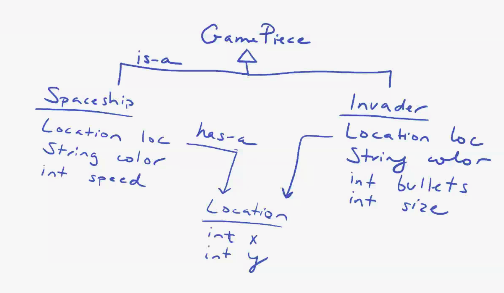 GamePiece
is-a
Spaceship
Location loc
String color
int speed
has-a
Invader
Location loc
String color
int bullets
int size
Location
int x
int y